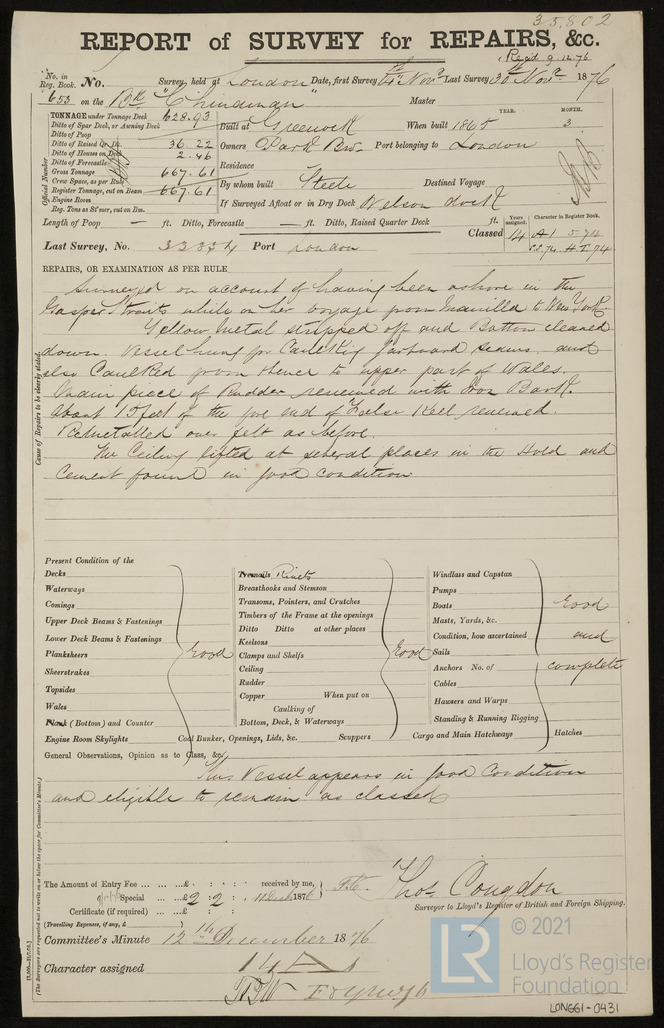 35,802
REPORT of SURVEY for REPAIRS, &c.
Rec'd 9.12.76
No. in Reg. Book. No. Survey held at London Date, first Survey 14th Novr Last Survey 30th Novr 1876
653 on the Bk "Chinaman" Master
TONNAGE under Tonnage Deck 628.93
Ditto of Spar Deck, or Awning Deck
Ditto of Poop
Ditto of Raised Qr. Dk. 36.22
Ditto of Houses on Deck 2.46
Ditto of Forecastle
Gross Tonnage 667.61
Crew Space, as per Rule
Register Tonnage, cut on Beam 667.61
Engine Room
Reg. Tons as St'mer, cut on Bm.
Official Number
YEAR. MONTH.
Built at Greenock When built 1865 3
Owners Park Bros. Port belonging to London
Residence
By whom built Steele Destined Voyage
If Surveyed Afloat or in Dry Dock Nelson dock
Length of Poop — ft. Ditto, Forecastle — ft. Ditto, Raised Quarter Deck ft.
Classed
Years assigned. 14
Character in Register Book.
A1 5-74
S.S. 74 H.T. 74
Last Survey, No. 33334 Port London
REPAIRS, OR EXAMINATION AS PER RULE
Cause of Repairs to be clearly stated.
Surveyed on account of having been ashore in the
Gaspar Straits while on her voyage from Manilla to New York.
Yellow Metal stripped off and Bottom cleaned
down. Vessel hung for Caulking Garboard seams. and
also Caulked from thence to upper part of Wales.
Main piece of Rudder renewed with Iron Bark.
About 15 feet of the fore end of False Keel renewed.
Remetalled over felt as before.
The Ceiling lifted at several places in the Hold and
Cement found in good condition
Present Condition of the
Decks
Waterways
Comings
Upper Deck Beams & Fastenings
Lower Deck Beams & Fastenings
Planksheers
Sheerstrakes
Topsides
Wales
Plank (Bottom) and Counter
Good
Engine Room Skylights
Treenails Rivets
Breasthooks and Stemson
Transoms, Pointers, and Crutches
Timbers of the Frame at the openings
Ditto Ditto at other places
Keelsons
Clamps and Shelfs
Ceiling
Rudder
Copper When put on
Caulking of
Bottom, Deck, & Waterways
Good
Coal Bunker, Openings, Lids, &c. Scuppers
Windlass and Capstan
Pumps
Boats
Masts, Yards, &c.
Condition, how ascertained
Sails
Anchors No. of
Cables
Hawsers and Warps
Standing & Running Rigging
Good
and
complete
Cargo and Main Hatchways Hatches
General Observations, Opinion as to Class, &c.
This Vessel appears in good Condition
and eligible to remain as classed
(The Surveyors are requested not to write on or below the space for Committee's Minute.)
The Amount of Entry Fee ... ... ...£ : : received by me,
Special ... ...£2 : 2 : 1876
Certificate (if required) ... ...£ : :
(Travelling Expenses, if any, £ )
Thos. Congdon
Surveyor to Lloyd's Register of British and Foreign Shipping.
Committee's Minute 12th December 1876
Character assigned 14 A 1
© 2021
LR
Lloyd's Register
Foundation
LON661-0431